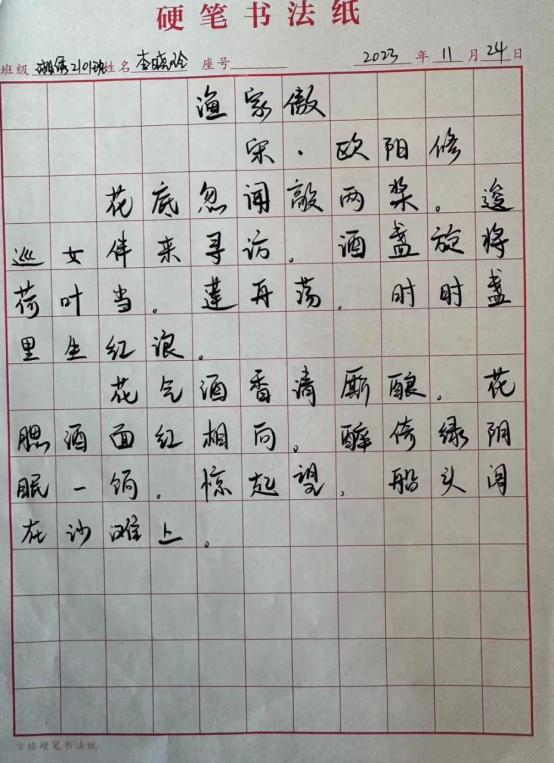 硬笔书法纸
班级 湘绣2101班 姓名 李晓玲 座号 2023 年 11 月 24 日
渔家傲
宋·欧阳修
花底忽闻敲两桨。逡
巡女伴来寻访。酒盏旋将
荷叶当。莲舟荡。时时盏
里生红浪。
花气酒香清厮酿。花
腮酒面红相向。醉倚绿阴
眠一饷。惊起望,船头阁
在沙滩上。
方格硬笔书法纸